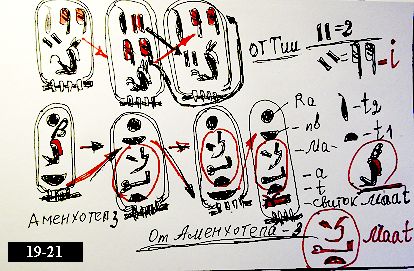 от Тии
11=2
11= = i
t2
t1
Ra
nb
-Ma-
-a
-t
-свиток Maat
Аменхотеп 3
От Аменхотепа-2
Maat
19-21